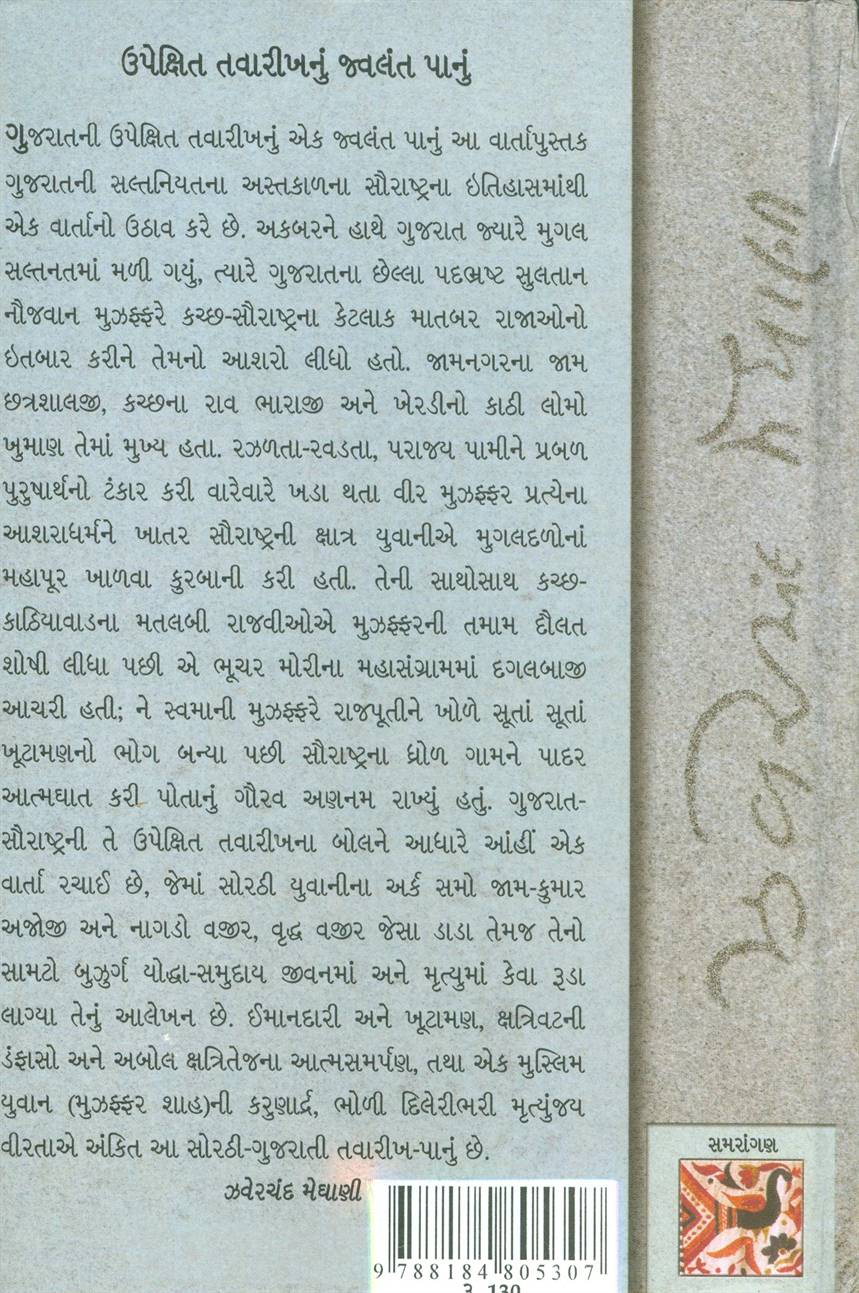 ઉપેક્ષિત તવારીખનું જ્વલંત પાનું
ગુજરાતની ઉપેક્ષિત તવારીખનું એક જ્વલંત પાનું આ વાર્તાપુસ્તક
ગુજરાતની સલ્તનિયતના અસ્તકાળના સૌરાષ્ટ્રના ઇતિહાસમાંથી
એક વાર્તાનો ઉઠાવ કરે છે. અકબરને હાથે ગુજરાત જ્યારે મુગલ
સલ્તનતમાં મળી ગયું, ત્યારે ગુજરાતના છેલ્લા પદભ્રષ્ટ સુલતાન
નૌજવાન મુઝફ્ફરે કચ્છ-સૌરાષ્ટ્રના કેટલાક માતબર રાજાઓનો
ઇતબાર કરીને તેમનો આશરો લીધો હતો. જામનગરના જામ
છત્રશાલજી, કચ્છના રાવ ભારાજી અને ખેરડીનો કાઠી લોમો
ખુમાણ તેમાં મુખ્ય હતા. રઝળતા-રવડતા, પરાજય પામીને પ્રબળ
પુરુષાર્થનો ટંકાર કરી વારેવારે ખડા થતા વીર મુઝફ્ફર પ્રત્યેના
આશરાધર્મને ખાતર સૌરાષ્ટ્રની ક્ષાત્ર યુવાનીએ મુગલદળોનાં
મહાપૂર ખાળવા કુરબાની કરી હતી. તેની સાથોસાથ કચ્છ-
કાઠિયાવાડના મતલબી રાજવીઓએ મુઝફ્ફરની તમામ દૌલત
શોષી લીધા પછી એ ભૂચર મોરીના મહાસંગ્રામમાં દગલબાજી
આચરી હતી; ને સ્વમાની મુઝફ્ફરે રાજપૂતીને ખોળે સૂતાં સૂતાં
ખૂટામણનો ભોગ બન્યા પછી સૌરાષ્ટ્રના ધ્રોળ ગામને પાદર
આત્મઘાત કરી પોતાનું ગૌરવ અણનમ રાખ્યું હતું. ગુજરાત-
સૌરાષ્ટ્રની તે ઉપેક્ષિત તવારીખના બોલને આધારે આંહીં એક
વાર્તા રચાઈ છે, જેમાં સોરઠી યુવાનીના અર્ક સમો જામ-કુમાર
અજોજી અને નાગડો વજીર, વૃદ્ધ વજીર જેસા ડાડા તેમજ તેનો
સામટો બુઝુર્ગ યોદ્ધા-સમુદાય જીવનમાં અને મૃત્યુમાં કેવા રૂડા
લાગ્યા તેનું આલેખન છે. ઈમાનદારી અને ખૂટામણ, ક્ષત્રિવટની
ડંફાસો અને અબોલ ક્ષત્રિતેજના આત્મસમર્પણ, તથા એક મુસ્લિમ
યુવાન (મુઝફ્ફર શાહ)ની કરુણાર્દ્ર, ભોળી દિલેરીભરી મૃત્યુંજય
વીરતાએ અંકિત આ સોરઠી-ગુજરાતી તવારીખ-પાનું છે.
ઝવેરચંદ મેઘાણી
9 788184 805307
રૂ. 130
ઝવેરચંદ મેઘાણી
સમરાંગણ